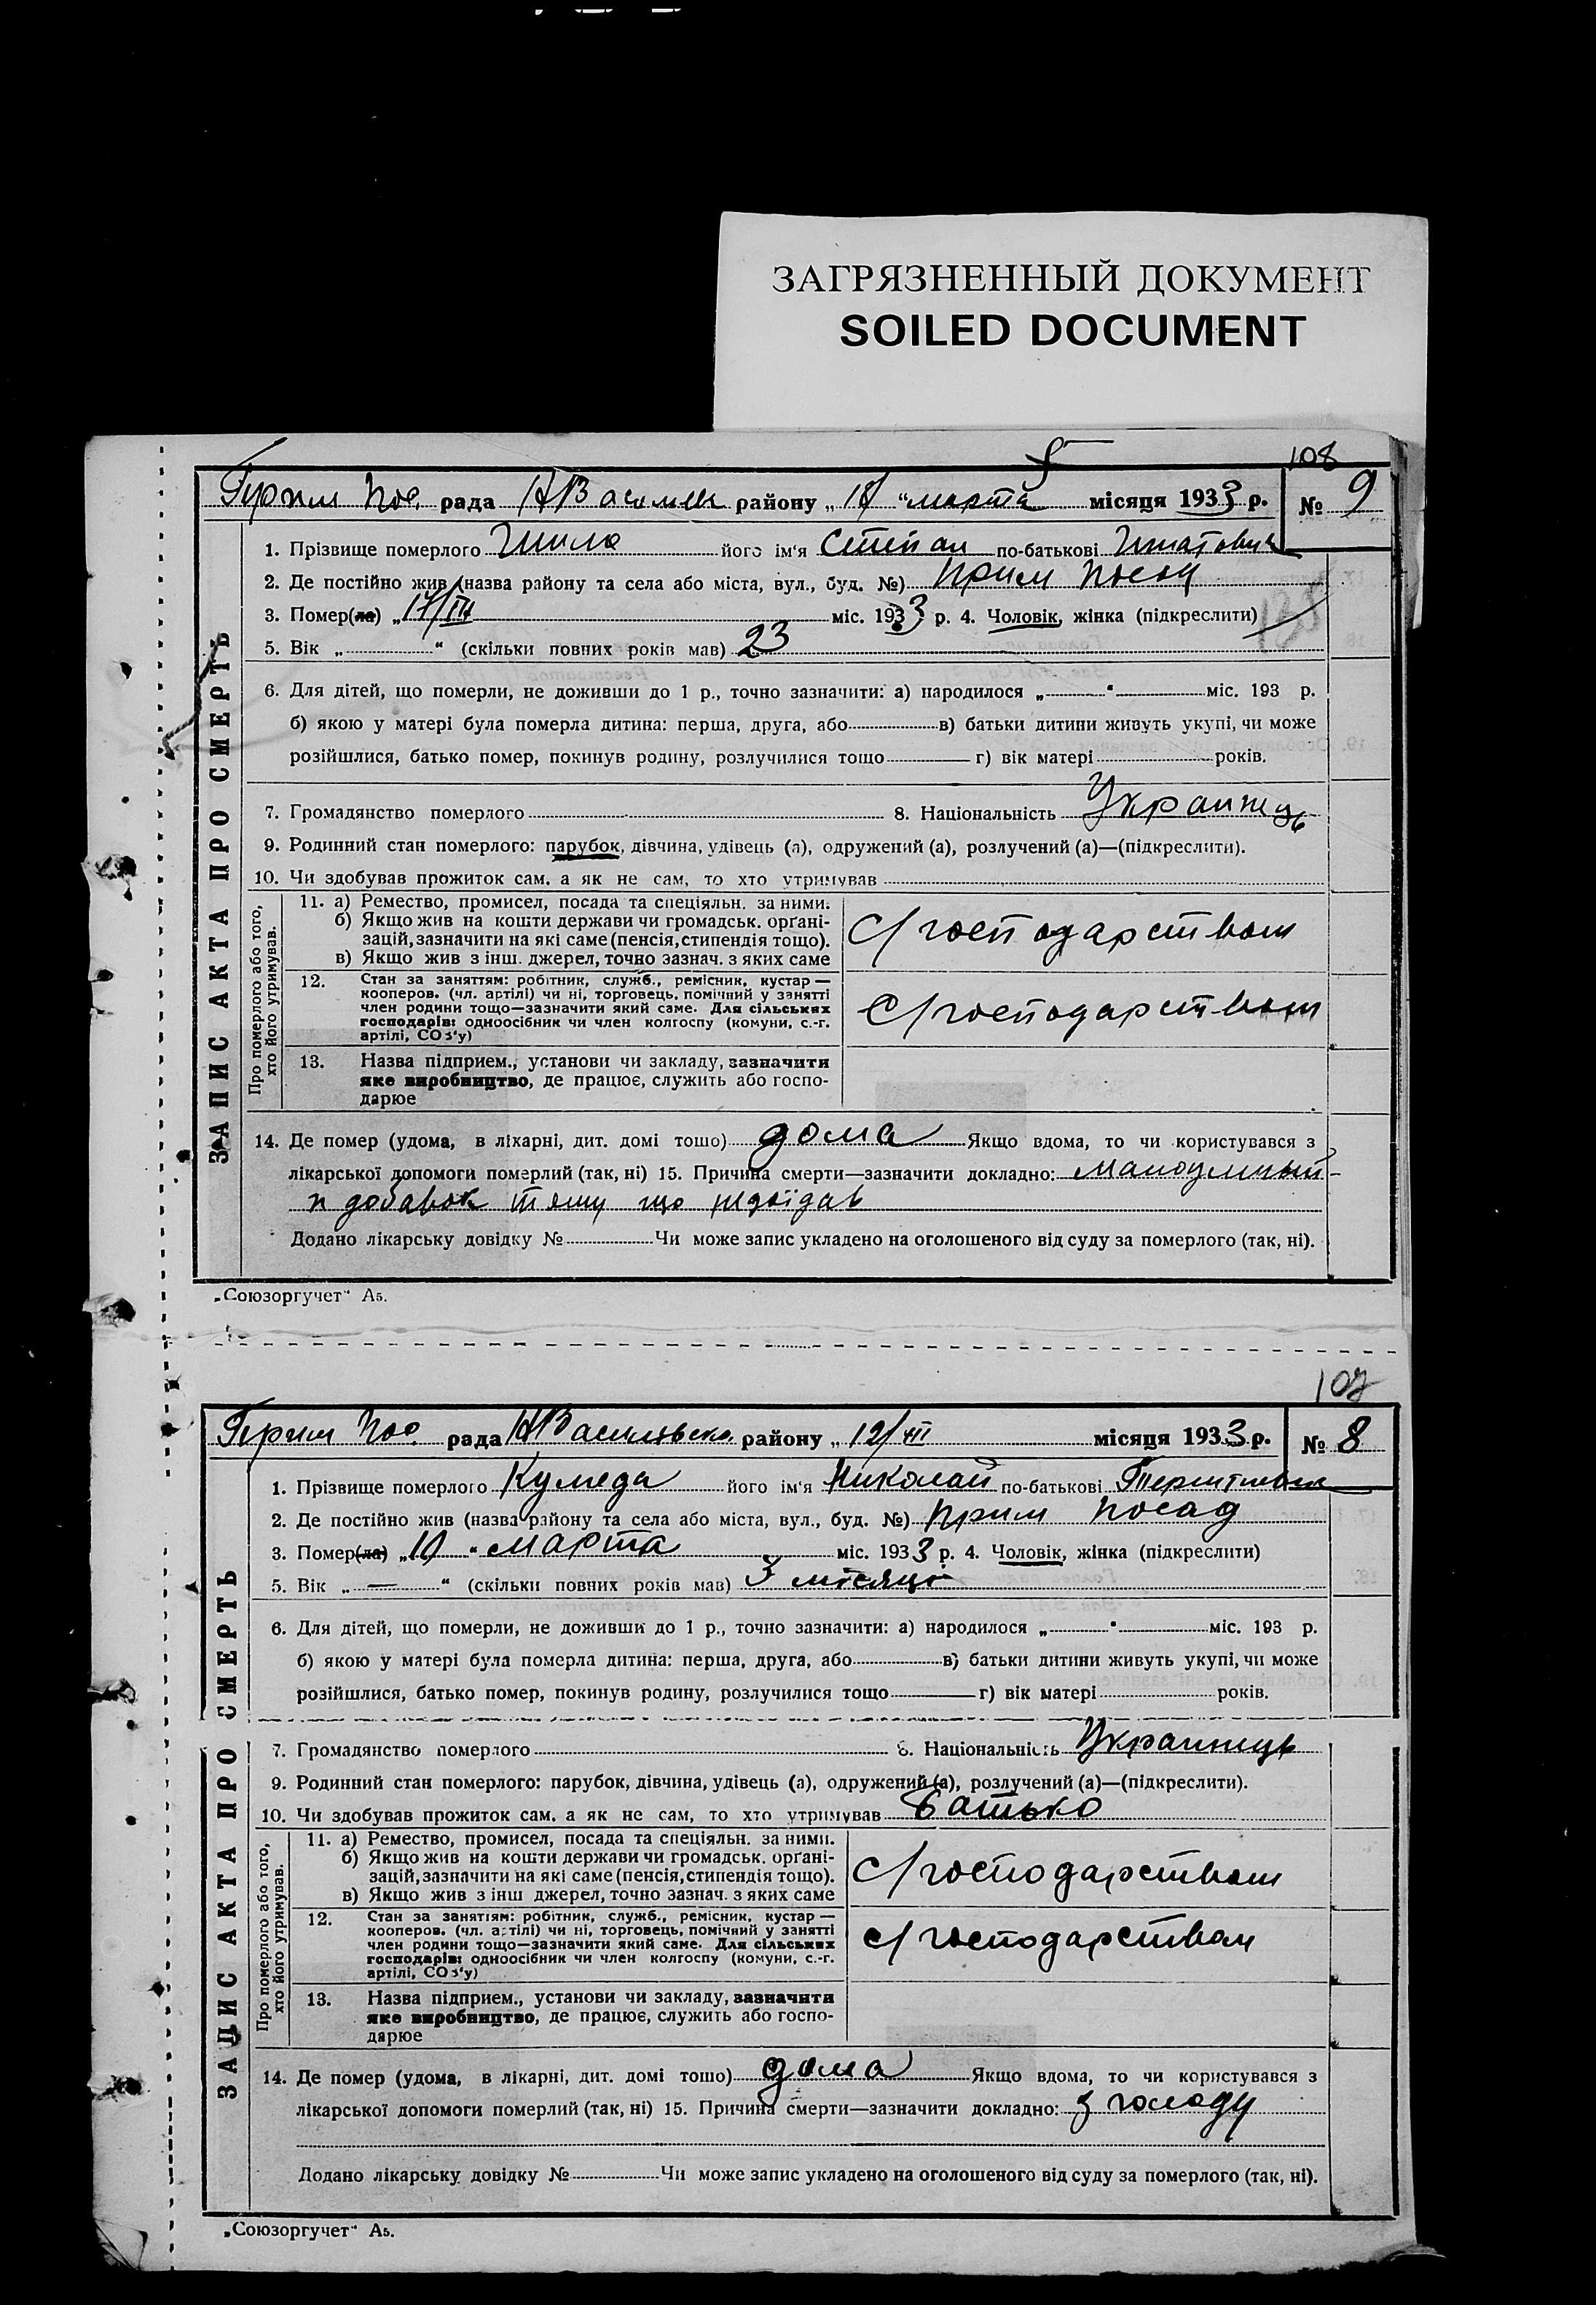 ЗАГРЯЗНЕННЫЙ ДОКУМЕНТ
SOILED DOCUMENT
108
рада района „ 18 “ марта місяця 1933 р. № 9
1. Прізвище померлого Шило його ім'я Степан по-батькові
2. Де постійно жив (назва району та села або міста, вул., буд. №) Прим Посад
3. Помер(ла) „ 17/III міс. 1933 р. 4. Чоловік, жінка (підкреслити)
5. Вік „ “ (скільки повних років мав) 23
6. Для дітей, що померли, не доживши до 1 р., точно зазначити: а) народилося „ “ міс. 193 р.
б) якою у матері була померла дитина: перша, друга, або в) батьки дитини живуть укупі, чи може
розійшлися, батько помер, покинув родину, розлучилися тощо г) вік матері років.
7. Громадянство померлого 8. Національність Украинець
9. Родинний стан померлого: парубок, дівчина, удівець (а), одружений (а), розлучений (а)—(підкреслити).
10. Чи здобував прожиток сам, а як не сам, то хто утримував
11. а) Ремество, промисел, посада та спеціяльн. за ними.
б) Якщо жив на кошти держави чи громадськ. органі-
зацій, зазначити на які саме (пенсія, стипендія тощо).
в) Якщо жив з інш. джерел, точно зазнач. з яких саме
с/господарством
12. Стан за заняттям: робітник, служб., ремісник, кустар—
кооперов. (чл. артілі) чи ні, торговець, помічний у занятті
член родини тощо—зазначити який саме. Для сільських
господарів: одноосібник чи член колгоспу (комуни, с.-г.
артілі, СОЗ'у)
с/господарством
13. Назва підприєм., установи чи закладу, зазначити
яке виробництво, де працює, служить або госпо-
дарює
Про померлого або того,
хто його утримував.
14. Де помер (удома, в лікарні, дит. домі тощо) дома Якщо вдома, то чи користувався з
лікарської допомоги померлий (так, ні) 15. Причина смерти—зазначити докладно: малоумный
и добавок тому що недоїдав
Додано лікарську довідку № Чи може запис укладено на оголошеного від суду за померлого (так, ні).
ЗАПИС АКТА ПРО СМЕРТЬ
„Союзоргучет“ А5.
107
рада району „ 12/III місяця 1933 р. № 8
1. Прізвище померлого Кумеда його ім'я Николай по-батькові
2. Де постійно жив (назва району та села або міста, вул., буд. №) Прим Посад
3. Помер(ла) „ 10 “ марта міс. 1933 р. 4. Чоловік, жінка (підкреслити)
5. Вік „ — “ (скільки повних років мав) 3 місяці
6. Для дітей, що померли, не доживши до 1 р., точно зазначити: а) народилося „ “ міс. 193 р.
б) якою у матері була померла дитина: перша, друга, або в) батьки дитини живуть укупі, чи може
розійшлися, батько помер, покинув родину, розлучилися тощо г) вік матері років.
7. Громадянство померлого 8. Національність Украинець
9. Родинний стан померлого: парубок, дівчина, удівець (а), одружений (а), розлучений (а)—(підкреслити).
10. Чи здобував прожиток сам, а як не сам, то хто утримував батько
11. а) Ремество, промисел, посада та спеціяльн. за ними.
б) Якщо жив на кошти держави чи громадськ. органі-
зацій, зазначити на які саме (пенсія, стипендія тощо).
в) Якщо жив з інш джерел, точно зазнач. з яких саме
с/господарством
12. Стан за заняттям: робітник, служб., ремісник, кустар—
кооперов. (чл. артілі) чи ні, торговець, помічний у занятті
член родини тощо—зазначити який саме. Для сільських
господарів: одноосібник чи член колгоспу (комуни, с.-г.
артілі, СОЗ'у)
с/господарством
13. Назва підприєм., установи чи закладу, зазначити
яке виробництво, де працює, служить або госпо-
дарює
Про померлого або того,
хто його утримував.
14. Де помер (удома, в лікарні, дит. домі тощо) дома Якщо вдома, то чи користувався з
лікарської допомоги померлий (так, ні) 15. Причина смерти—зазначити докладно: з голоду
Додано лікарську довідку № Чи може запис укладено на оголошеного від суду за померлого (так, ні).
ЗАПИС АКТА ПРО СМЕРТЬ
„Союзоргучет“ А5.